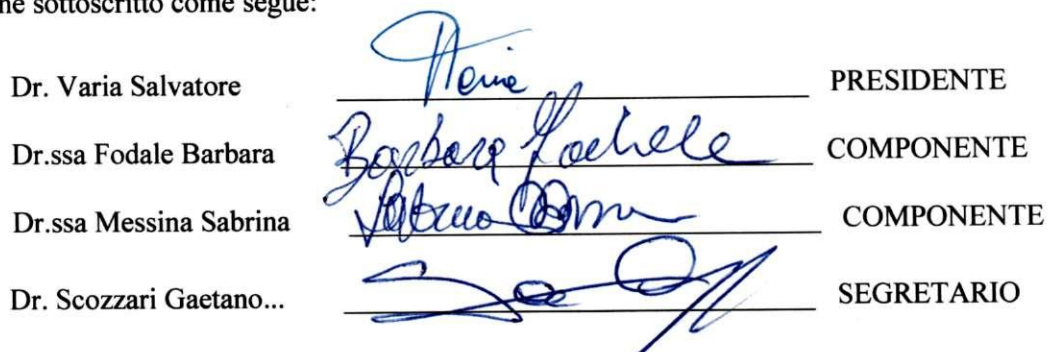 ne sottoscritto come segue:
Dr. Varia Salvatore PRESIDENTE
Dr.ssa Fodale Barbara Barbara Fodale COMPONENTE
Dr.ssa Messina Sabrina Sabrina COMPONENTE
Dr. Scozzari Gaetano... SEGRETARIO